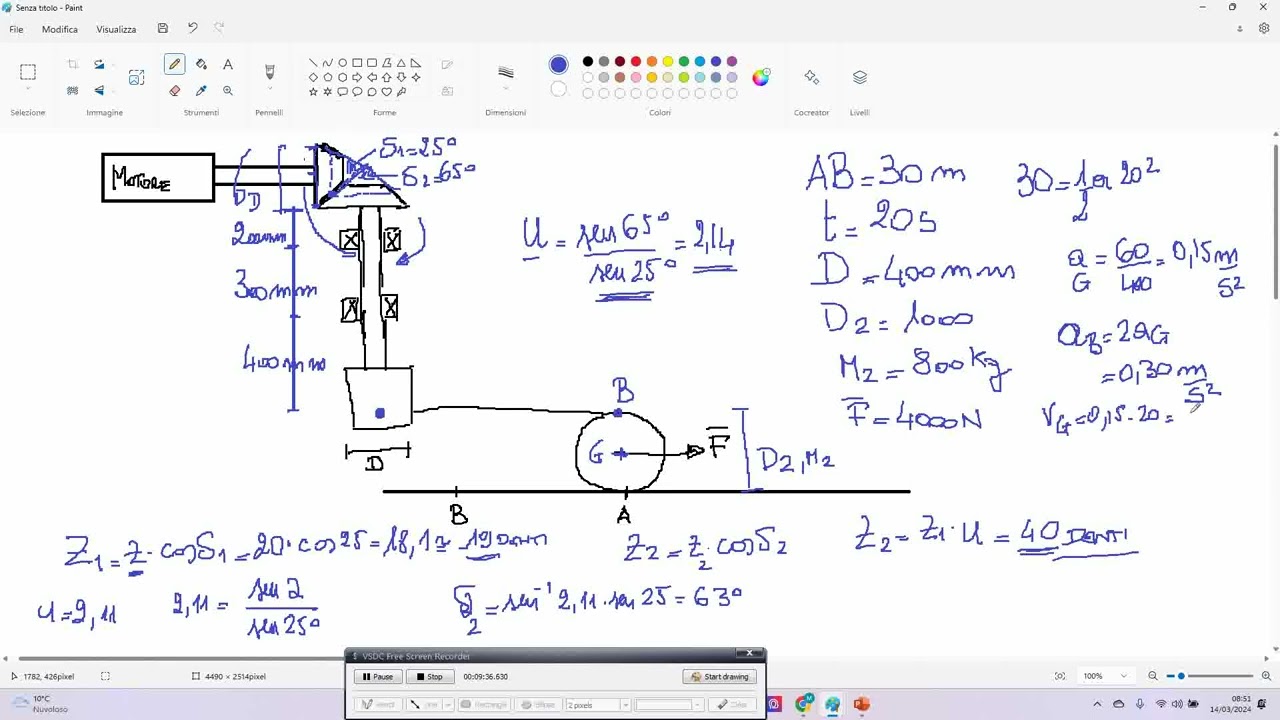 Senza titolo - Paint
File Modifica Visualizza
Selezione Immagine Strumenti Pennelli Forme Dimensioni Colori Cocreator Livelli
MOTORE
DD
δ1=25°
δ2=65°
200mm
300mm
400mm
D
U = sen65° / sen25° = 2,14
B
G
F
D2, M2
B
A
AB=30m
t=20s
D=400mm
D2=1000
M2=800kg
F=4000N
30=1/2 a 20²
aG=60/400=0,15 m/s²
aB=2aG
=0,30 m/s²
VG=0,15·20=
Z1=z·cosδ1=20·cos25=18,12 19 DENTI
Z2=z2·cosδ2
Z2=Z1·u=40 DENTI
u=2,11
2,11= sen2 / sen25°
δ2=sen⁻¹ 2,11·sen25=63°
VSDC Free Screen Recorder
Pause Stop 00:09:36.630 Start drawing
2 pixels
1782, 426pixel
4490 × 2514pixel
100%
Nuvoloso
08:51
14/03/2024